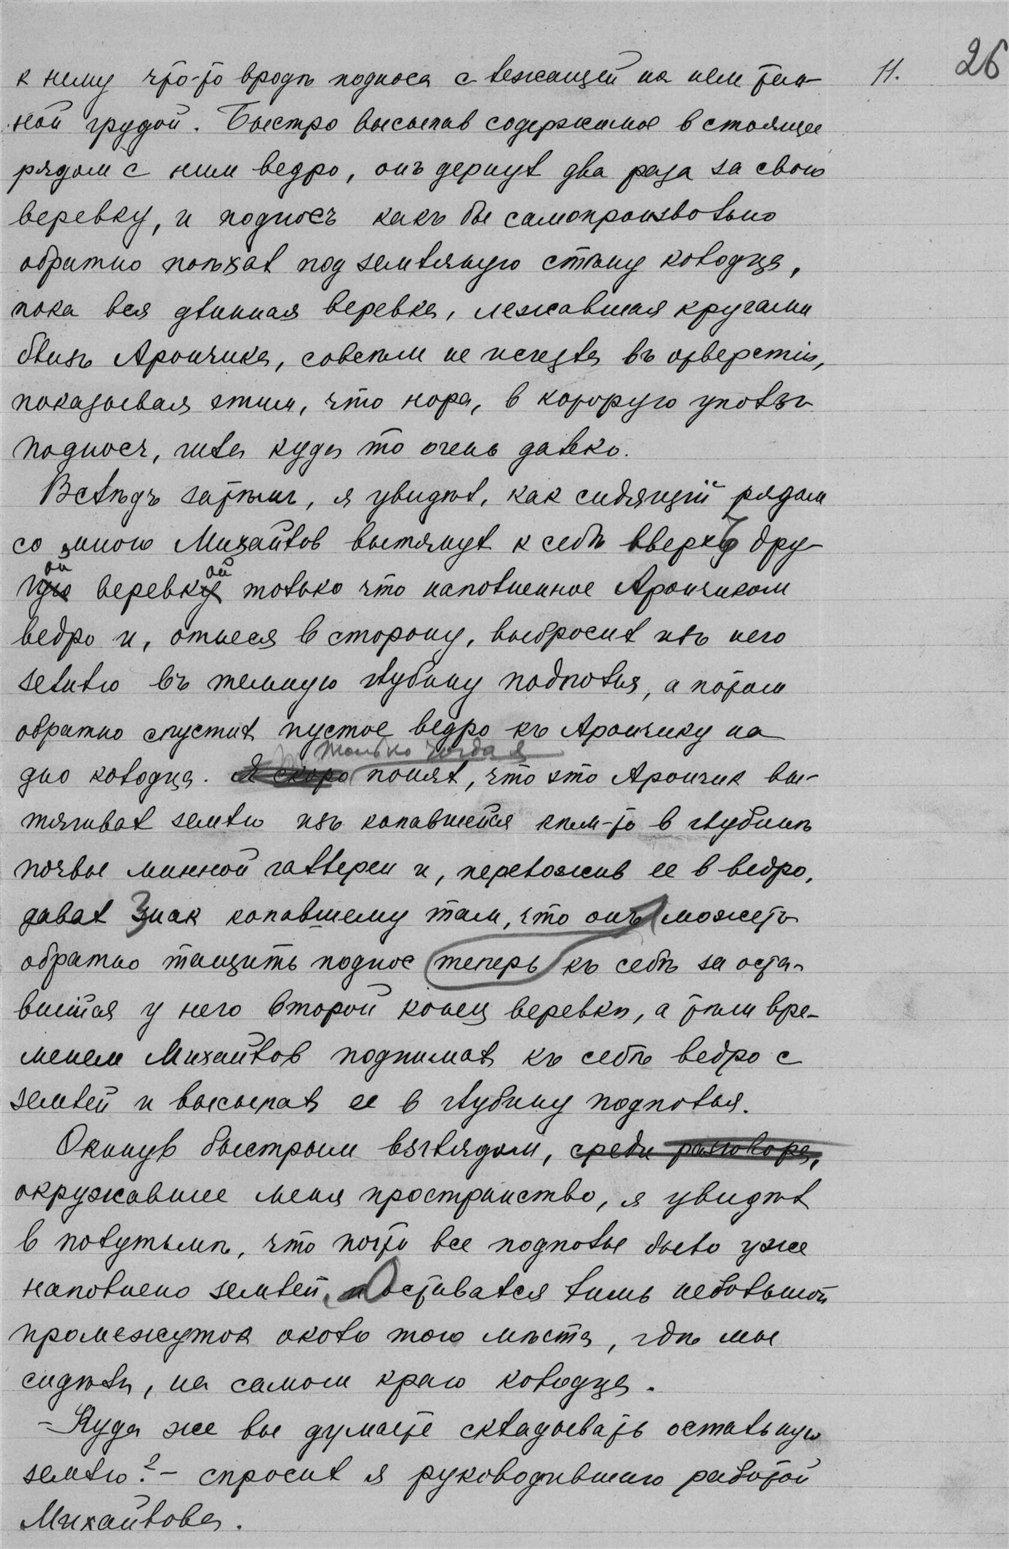 26
11.
к нему что-то вродѣ подноса с лежащей на нем тем-
ной грудой. Быстро высыпав содержимое в стоящее
рядом с ним ведро, онъ дернул два раза за свою
веревку, и подносъ какъ бы самопроизвольно
обратно поѣхал под земляную стѣну колодца,
пока вся длинная веревка, лежавшая кругами
близъ Арончика, совсѣм не исчезла въ отверстіи,
показывая этим, что нора, в которую уполз
поднос, шла куда то очень далеко.
Вслѣдъ затѣмъ, я увидѣл, как сидящій рядом
со мною Михайлов вытянул к себѣ вверхъ дру-
гой веревкой только что наполненное Арончиком
ведро и, отнеся в сторону, выбросил изъ него
землю въ темную глубину подполья, а потом
обратно спустил пустое ведро къ Арончику на
только тогда я
дно колодца. Я скоро понял, что это Арончик вы-
тягивал землю изъ копавшейся кѣм-то в глубинѣ
почвы минной галлереи и, переложив ее в ведро,
давал знак копавшему там, что онъ можетъ
обратно тащить поднос теперь къ себѣ за остав-
шійся у него второй конец веревки, а тѣм вре-
менем Михайлов поднимал къ себѣ ведро с
землей и высыпал ее в глубину подполья.
Окинув быстрым взглядом, среди разговора,
окружавшее меня пространство, я увидѣл
в полутьмѣ, что почти все подполье было уже
наполнено землей. Оставался лишь небольшой
промежуток около того мѣста, гдѣ мы
сидѣли, на самом краю колодца.
– Куда же вы думаете складывать остальную
землю? – спросил я руководившаго работой
Михайлова.